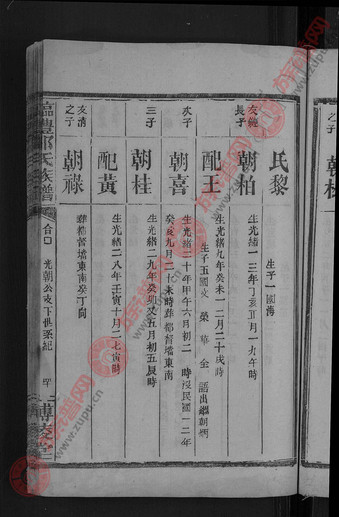 氏黎
生子一國海
友鯤長子
朝柏
生光緒一三年丁亥四月一九午時
配王
生光緒九年癸未一二月二十戌時
生子五國文 榮 華 金 語出繼朝炳
次子
朝喜
生光緒二十年甲午六月初二 時歿民國一二年
癸亥九月二十未時葬都督壋東南
三子
朝桂
生光緒二九年癸卯又五月初五辰時
配黃
生光緒二八年壬寅十月二七寅時
葬都督壋東南癸丁向
友清之子
朝祿
鄧氏族譜
卷口
光朝公支下世系紀
博陵堂
之子
www.zupu.cn